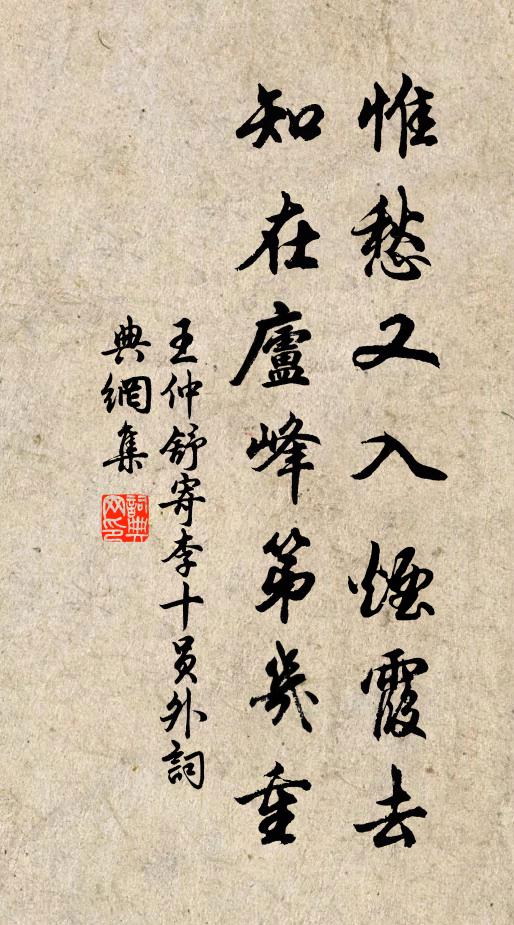 惟愁又入煙霞去
知在廬峰第幾重
王仲舒寄李十員外詞
典網集
詞典
网印